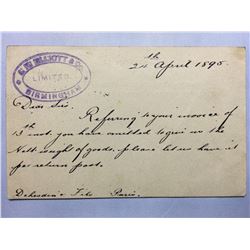 ELLIOTT & Co.
LIMITED
BIRMINGHAM
24th April 1895
Dear Sir,
Referring to your invoice of
13th inst. you have omitted to give us the
Nett weight of goods. please let us have it
per return post.
Fils Paris.